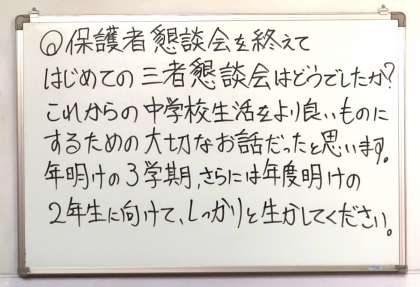 ◎保護者懇談会を終えて
はじめての三者懇談会はどうでしたか?
これからの中学校生活をより良いものに
するための大切なお話だったと思います。
年明けの3学期、さらには年度明けの
2年生に向けて、しっかりと生かしてください。